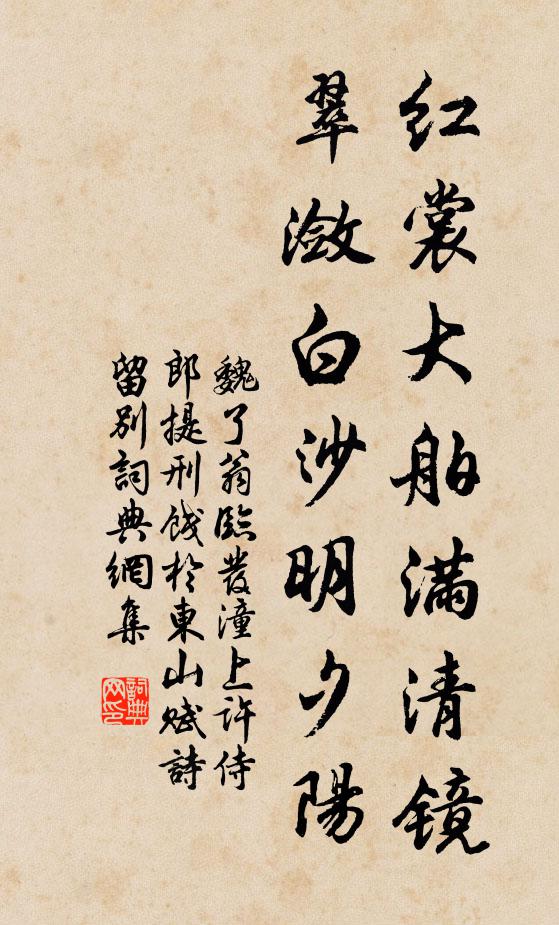 红裳大舶满清镜
翠潋白沙明夕陽
魏了翁臨發潼上許侍
郎提刑餞於東山赋詩
留別詞典網集
詞典网印